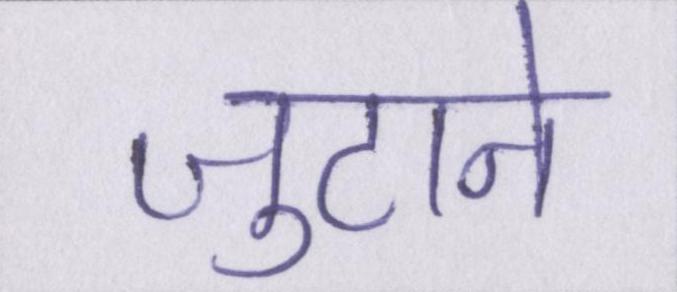 जुटाने